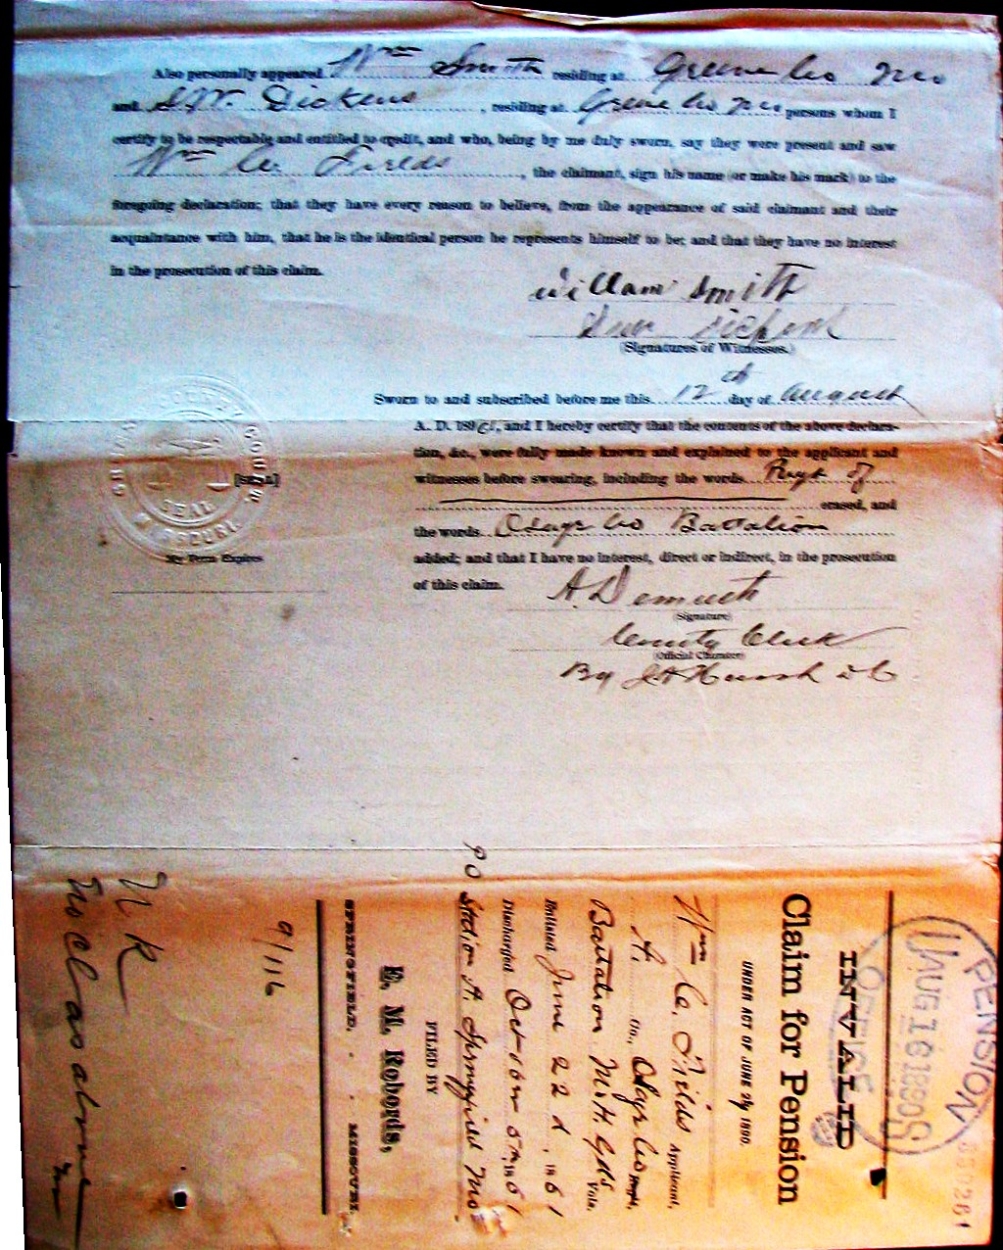 Also personally appeared Wm Smith residing at Greene Co Mo
and S.W. Dickens, residing at Greene Co Mo persons whom I
certify to be respectable and entitled to credit, and who, being by me duly sworn, say they were present and saw
Wm C. Fields, the claimant, sign his name (or make his mark) to the
foregoing declaration; that they have every reason to believe, from the appearance of said claimant and their
acquaintance with him, that he is the identical person he represents himself to be; and that they have no interest
in the prosecution of this claim.
William Smith
Dickens
(Signatures of Witnesses.)
Sworn to and subscribed before me this 12th day of August
A. D. 189, and I hereby certify that the contents of the above declara-
tion, &c., were fully made known and explained to the applicant and
witnesses before swearing, including the words Regt of
erased, and
the words Osage Co Battalion
added; and that I have no interest, direct or indirect, in the prosecution
of this claim.
A. Demuth
(Signature)
County Clerk
(Official Character)
By
[SEAL]
COUNTY COURT
SEAL
MISSOURI
My Term Expires
PENSION
OFFICE
AUG 16 1890
INVALID
Claim for Pension
UNDER ACT OF JUNE 27, 1890.
Wm C. Fields Applicant,
A. Co., Osage Co Regt,
Battalion Mo H. Gds Vols.
Enlisted June 22d, 1861
Discharged October 5th, 186
P O Station A. Springfield Mo
FILED BY
E. M. Robords,
SPRINGFIELD, MISSOURI.
9/116
N R